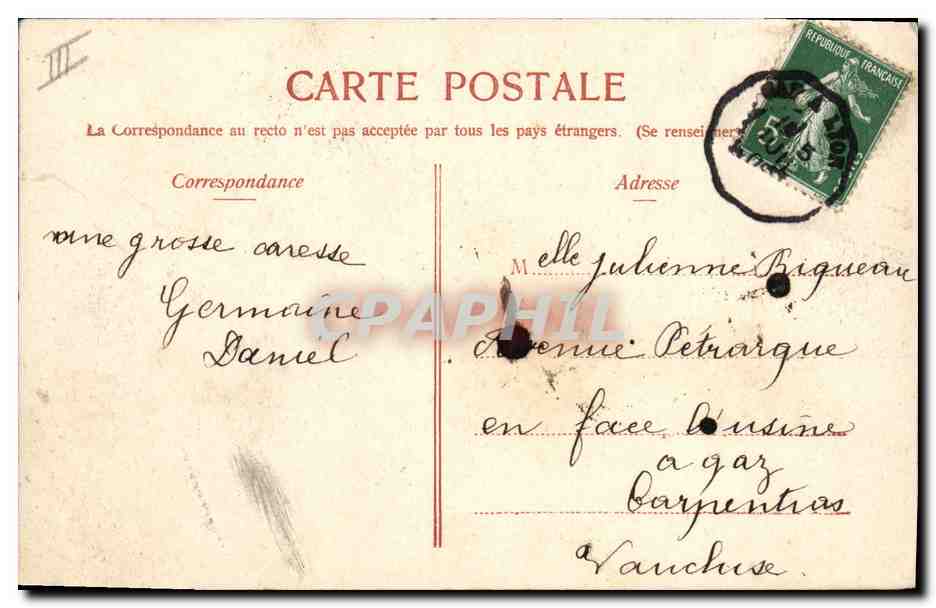 III
CARTE POSTALE
La Correspondance au recto n'est pas acceptée par tous les pays étrangers. (Se renseigner
Correspondance
Adresse
REPUBLIQUE FRANÇAISE
5
GAP A LYON
5
une grosse caresse
Germaine
Daniel
Melle Julienne Riqueau
Avenue Pétrarque
en face l'usine
a gaz
Carpentras
a Vaucluse
CPAPHIL